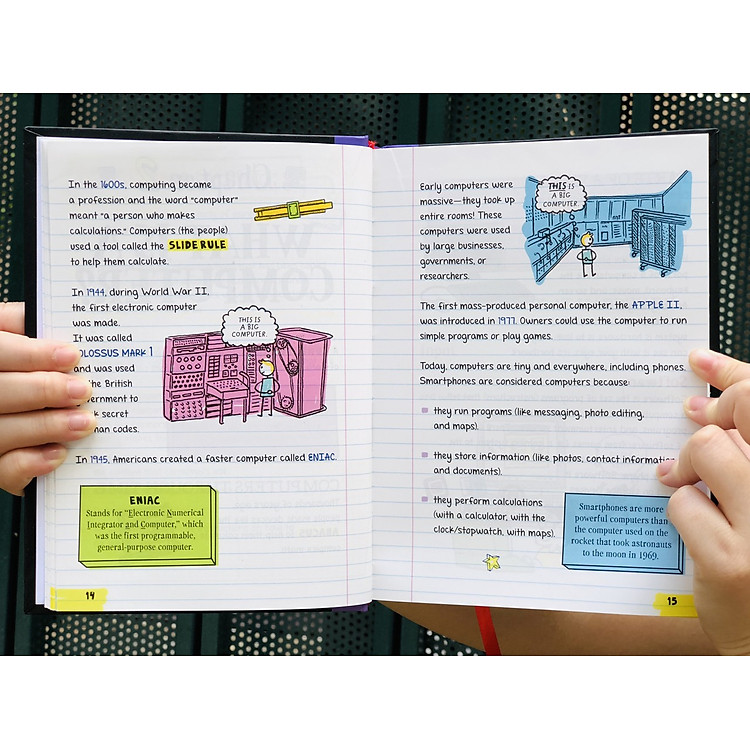 In the 1600s, computing became
a profession and the word "computer"
meant "a person who makes
calculations." Computers (the people)
used a tool called the SLIDE RULE
to help them calculate.
In 1944, during World War II,
the first electronic computer
was made.
It was called
COLOSSUS MARK 1
and was used
the British
secret
codes.
THIS IS
A BIG
COMPUTER.
In 1945, Americans created a faster computer called ENIAC.
ENIAC
Stands for "Electronic Numerical
Integrator and Computer," which
was the first programmable,
general-purpose computer.
14
Early computers were
massive—they took up
entire rooms! These
computers were used
by large businesses,
governments, or
researchers.
THIS IS A
BIG
COMPUTER.
The first mass-produced personal computer, the APPLE II,
was introduced in 1977. Owners could use the computer to run
simple programs or play games.
Today, computers are tiny and everywhere, including phones.
Smartphones are considered computers because:
they run programs (like messaging, photo editing,
and maps).
they store information (like photos, contact information
and documents).
they perform calculations
(with a calculator, with the
clock/stopwatch, with maps).
Smartphones are more
powerful computers than
the computer used on the
rocket that took astronauts
to the moon in 1969.
15